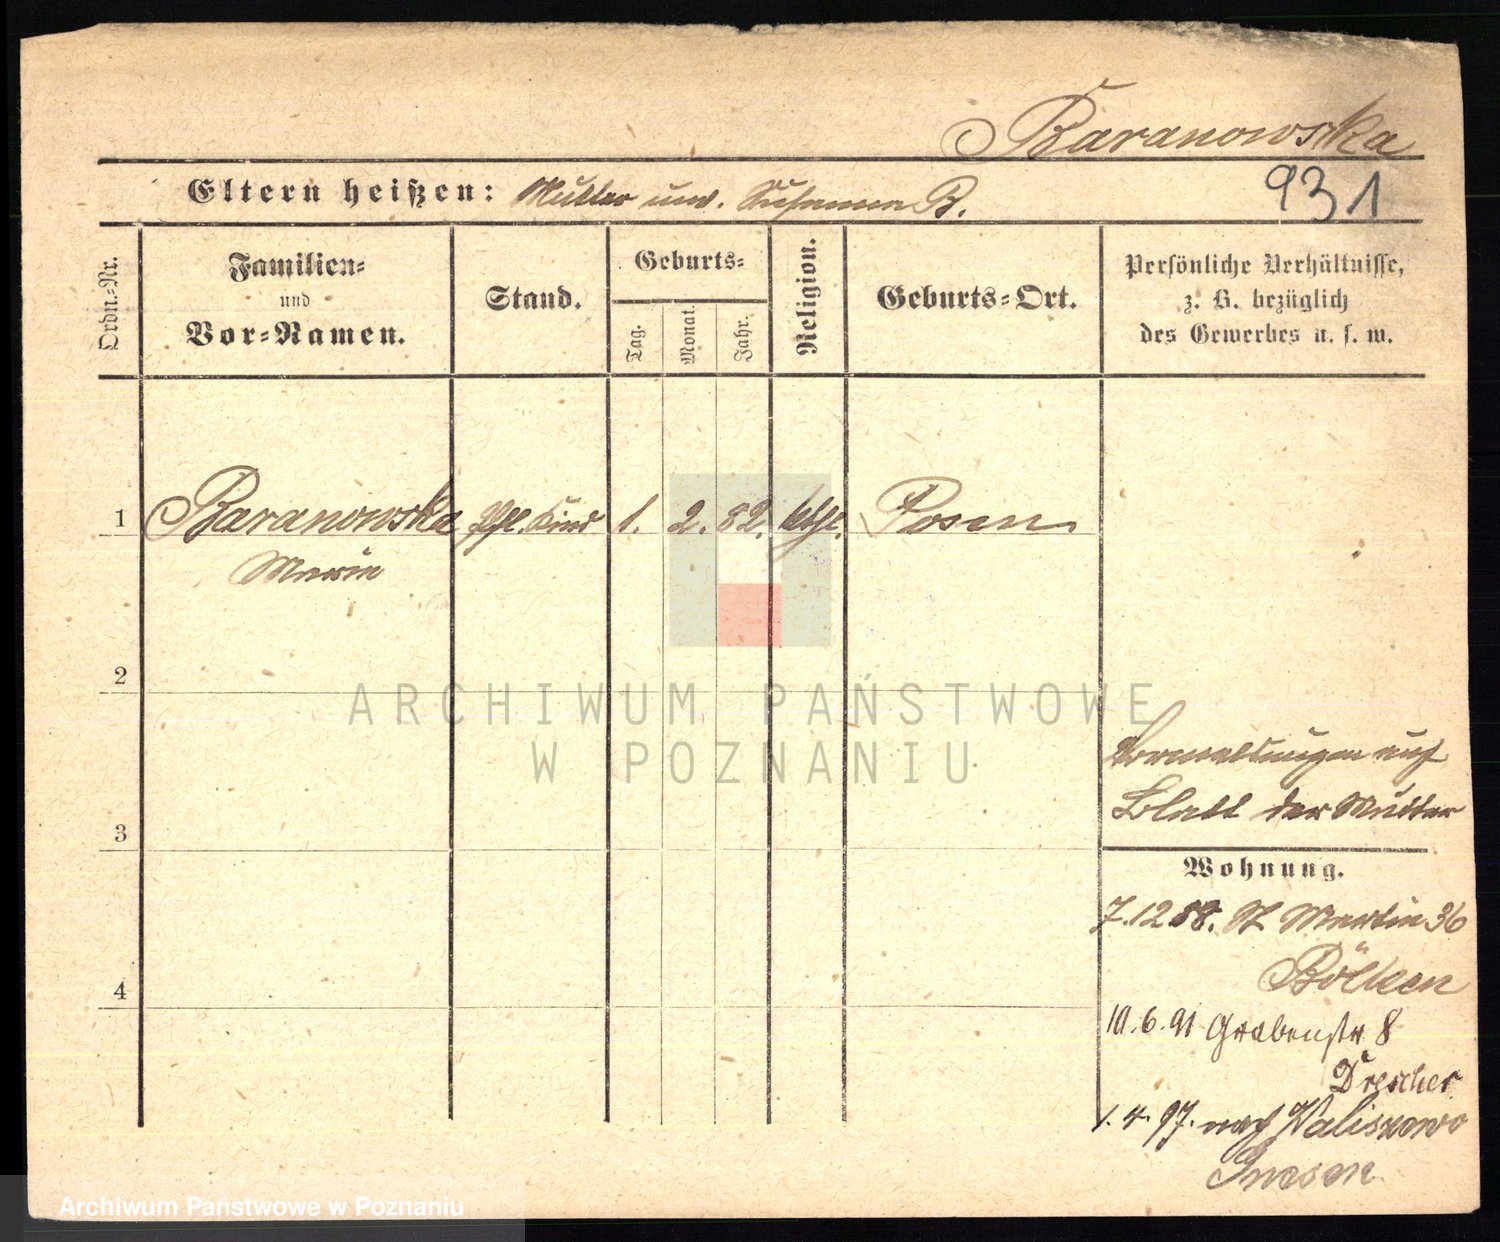 Baranowska
Eltern heißen: Mutter unv. Susanna B.
931
Ordn.-Nr.
Familien-
und
Vor-Namen.
Stand.
Geburts-
Tag.
Monat.
Jahr.
Religion.
Geburts-Ort.
Persönliche Verhältnisse,
z. B. bezüglich
des Gewerbes u. s. w.
1 Baranowska Pfl. Kind 1. 2. 82. kath. Posen
Marie
2
3
4
Vormeldungen auf
Blatt der Mutter
Wohnung.
7.12 88. St Martin 36
Bölken
10.6.91 Grabenstr 8
Drescher
1.4.97. nach Waliszewo
Gnesen
ARCHIWUM PAŃSTWOWE
W POZNANIU
Archiwum Państwowe w Poznaniu